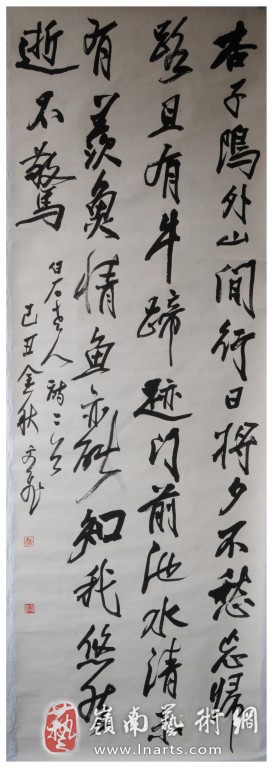 杏子隖外山閒行日將夕不愁忘歸
路且有牛蹄迹门前池水清未
有羨魚情魚亦能知我悠然
逝不驚
白石老人詩二首
己丑金秋
嶺南藝術網
www.lnarts.com